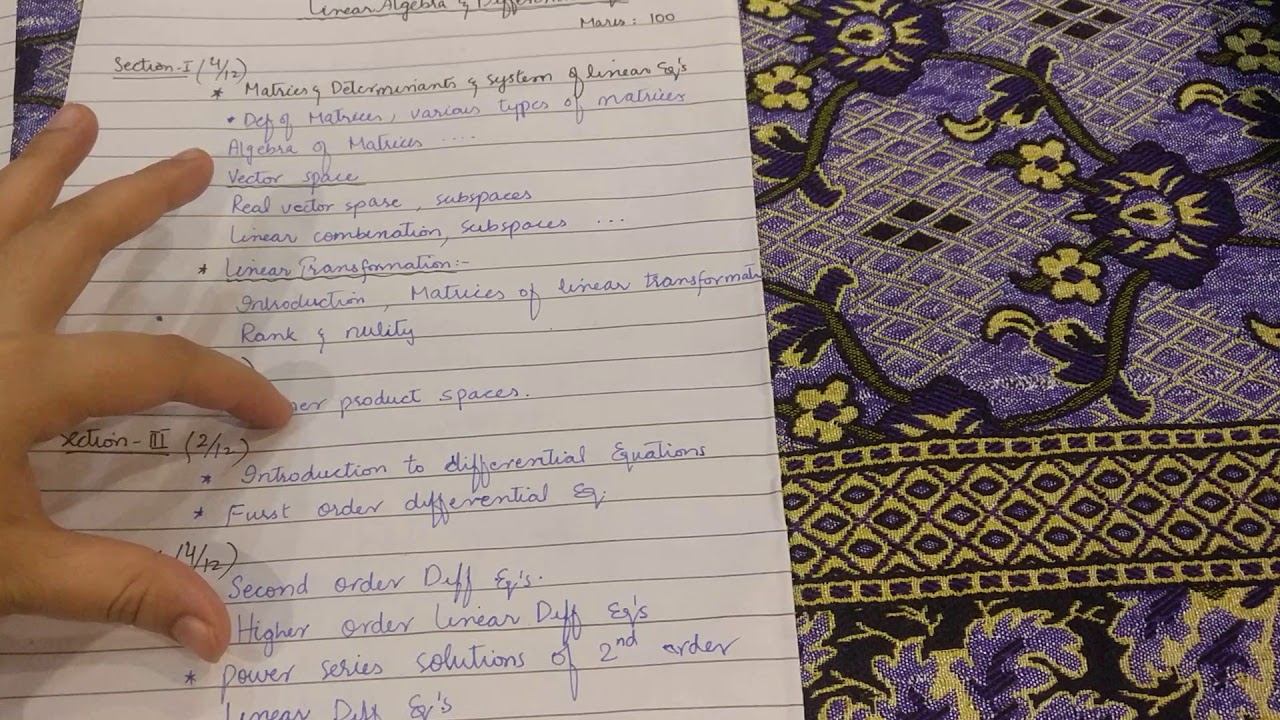 Linear Algebra & Differential
Marks: 100
Section-I (4/12)
* Matrices & Determinants & system of linear Eq's
• Def of Matrices, various types of matrices
Algebra of Matrices ....
Vector space
Real vector spase, subspaces
Linear combination, subspaces ...
* Linear Transformation:-
Introduction, Matrices of linear transformati
Rank & nulity
)
ner product spaces.
Section-III (2/12)
* Introduction to differential Equations
* Furst order differential Eq.
(4/12)
Second order Diff Eq's.
Higher order linear Diff Eq's
* Power series solutions of 2nd order
Linear Diff Eq's